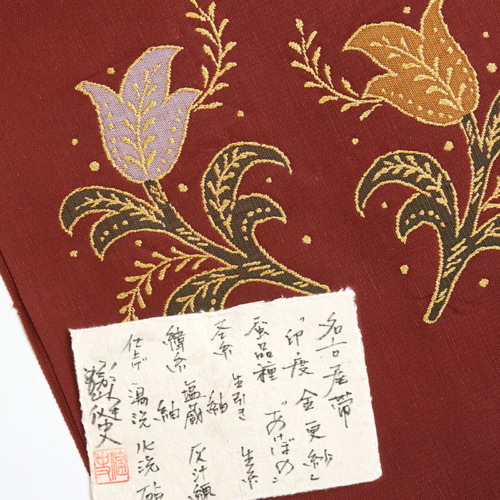 名古屋帯
「印度 金更紗」
蚕品種 "あけぼの"
経糸 生引き 生糸
紬
緯糸 塩蔵 灰汁練
紬
仕上げ 湯洗 水洗 砧